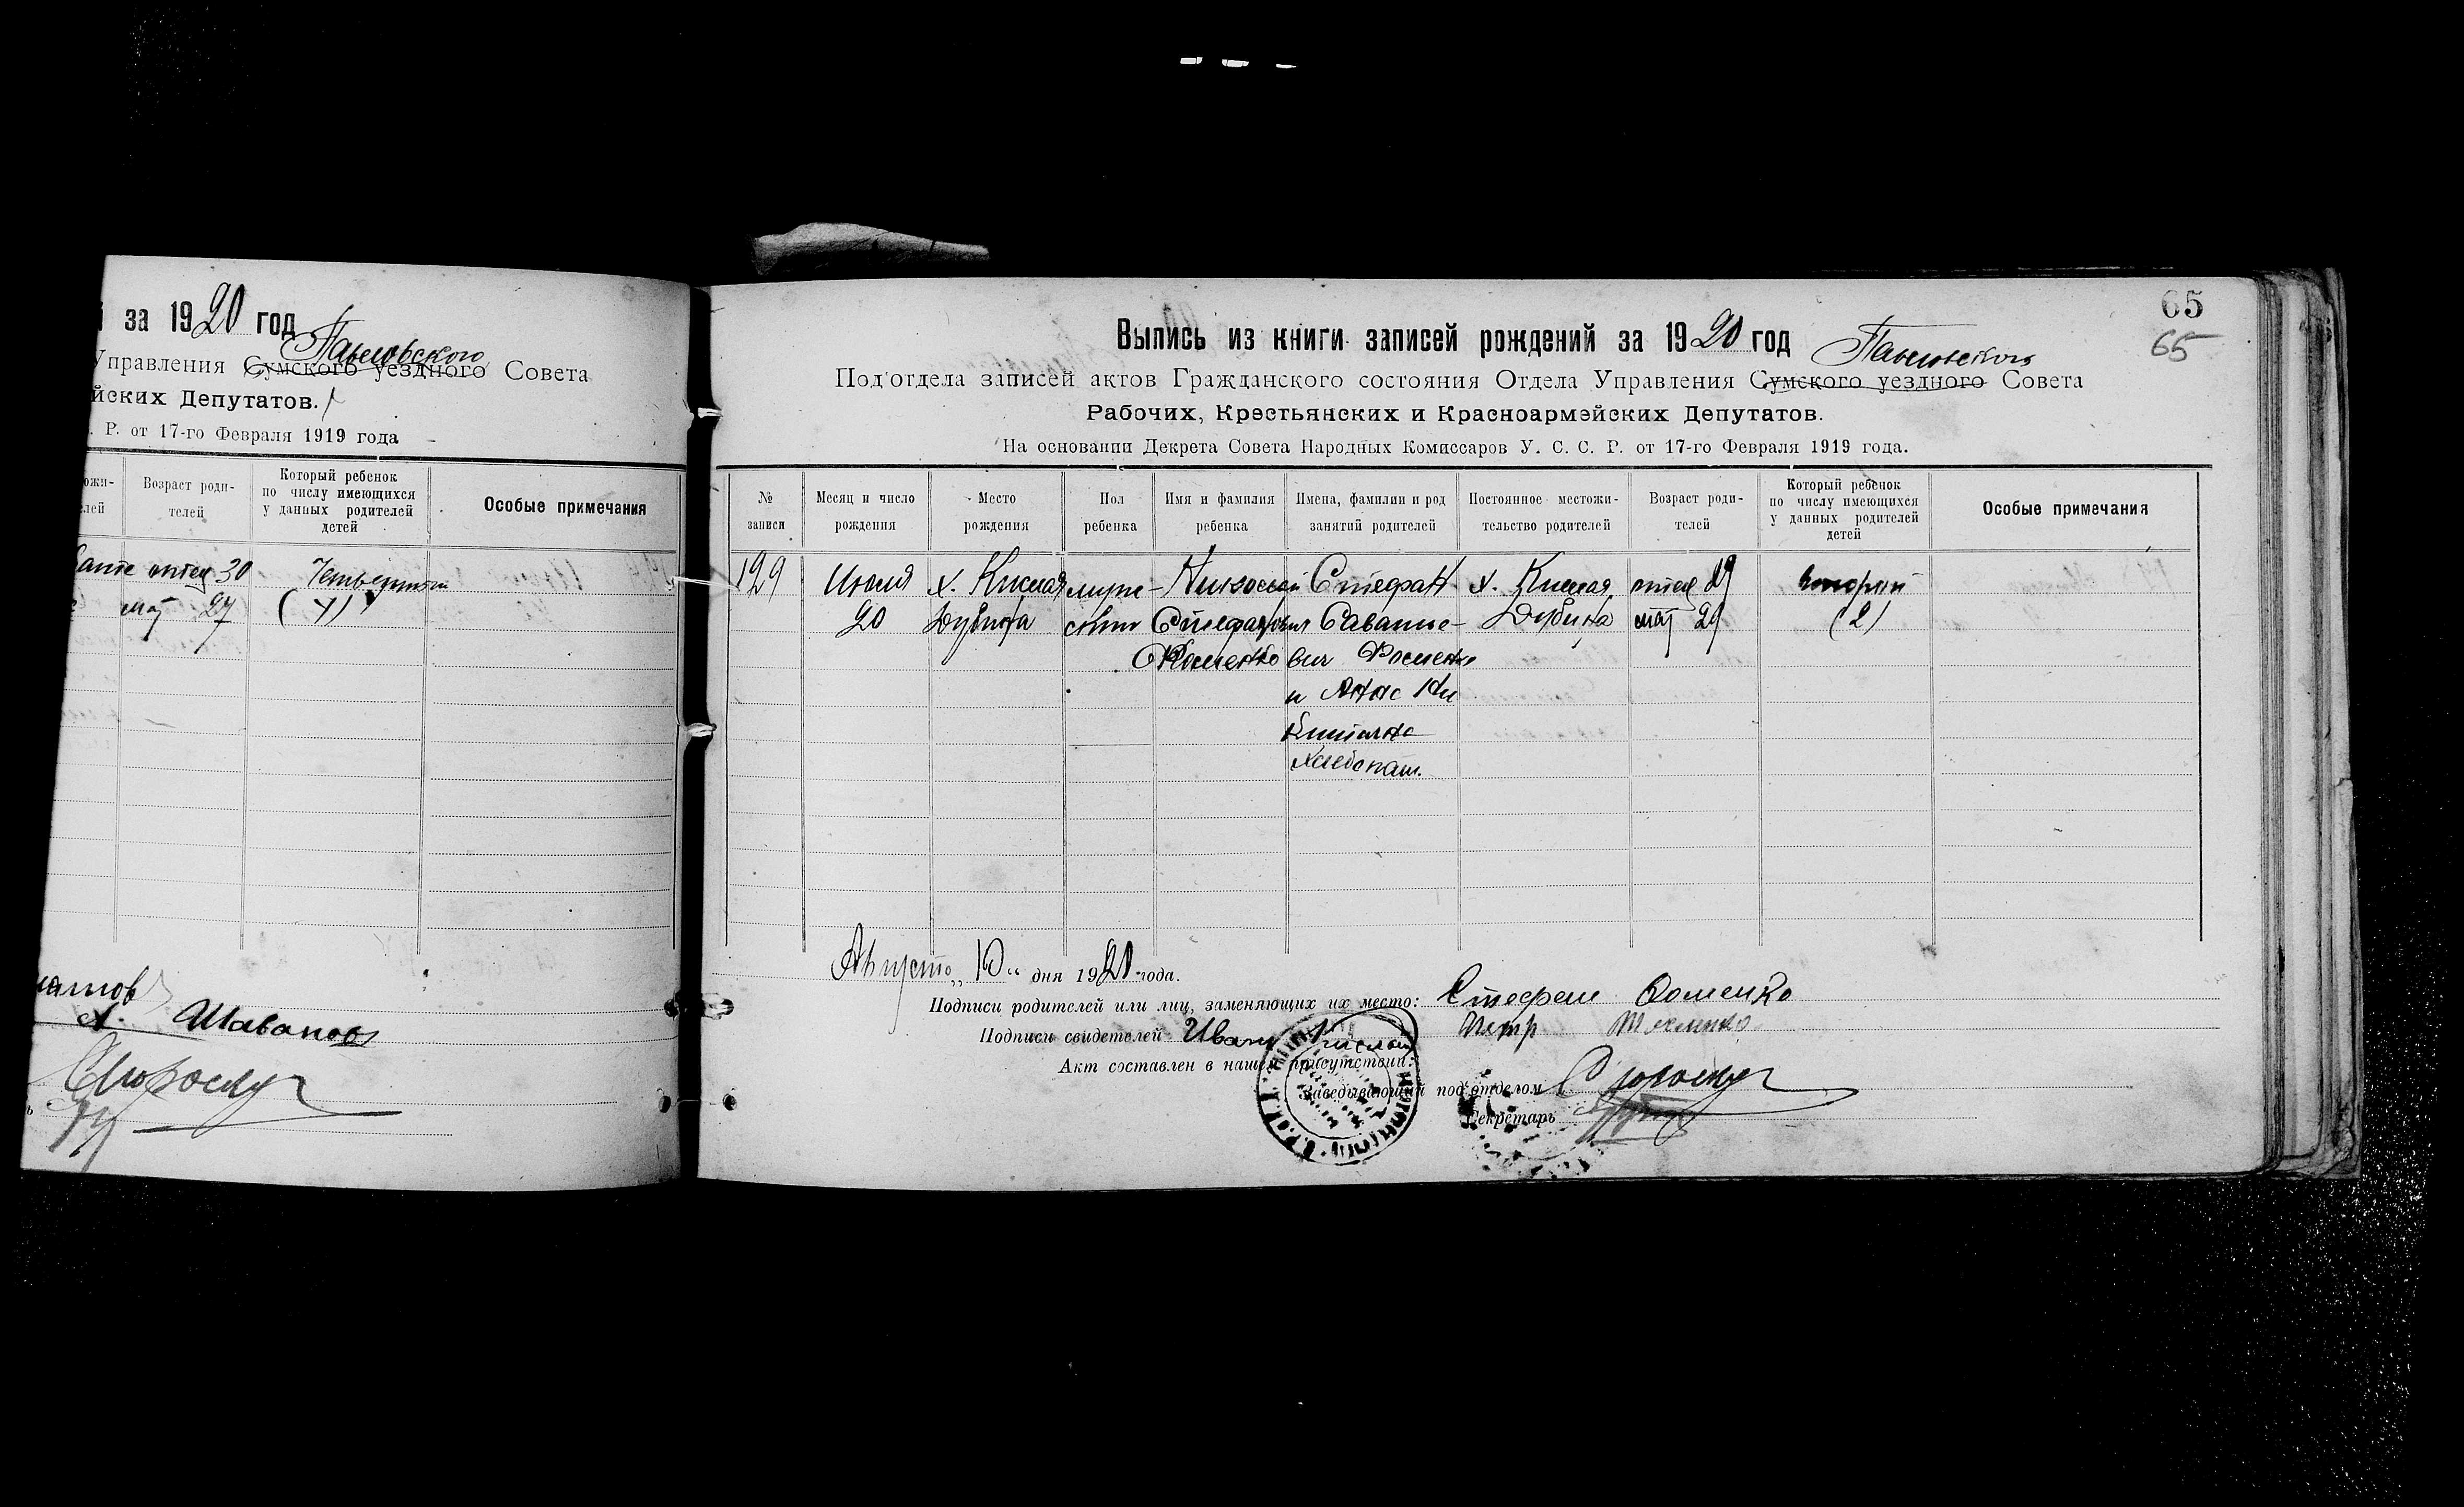 за 1920 год
Павловского
Управления Сумского уездного Совета
йских Депутатов.
Р. от 17-го Февраля 1919 года
Возраст роди-
телей
Который ребенок
по числу имеющихся
у данных родителей
детей
Особые примечания
отец 30
мат 27
(4)
Шаванов
65
65
Выпись из книги записей рождений за 1920 год
Павловского
Под'отдела записей актов Гражданского состояния Отдела Управления Сумского уездного Совета
Рабочих, Крестьянских и Красноармейских Депутатов.
На основании Декрета Совета Народных Комиссаров У. С. С. Р. от 17-го Февраля 1919 года.
№
записи
Месяц и число
рождения
Место
рождения
Пол
ребенка
Имя и фамилия
ребенка
Имена, фамилии и род
занятий родителей
Постоянное местожи-
тельство родителей
Возраст роди-
телей
Который ребенок
по числу имеющихся
у данных родителей
детей
Особые примечания
129
Июля
20
х. Кислая
Дубина
муже-
Николай
Стефанович
Фоменко
Стефан
Савелье-
вич Фоменко
и
Хлебопаш.
х. Кислая
Дубина
отец 29
мат 29
второй
(2)
Августа „10“ дня 1920 года.
Подписи родителей или лиц, заменяющих их место: Стефан Фоменко
Подписи свидетелей Иван Петр
Акт составлен в нашем присутствии:
Заведывающий под'отделом
Секретарь